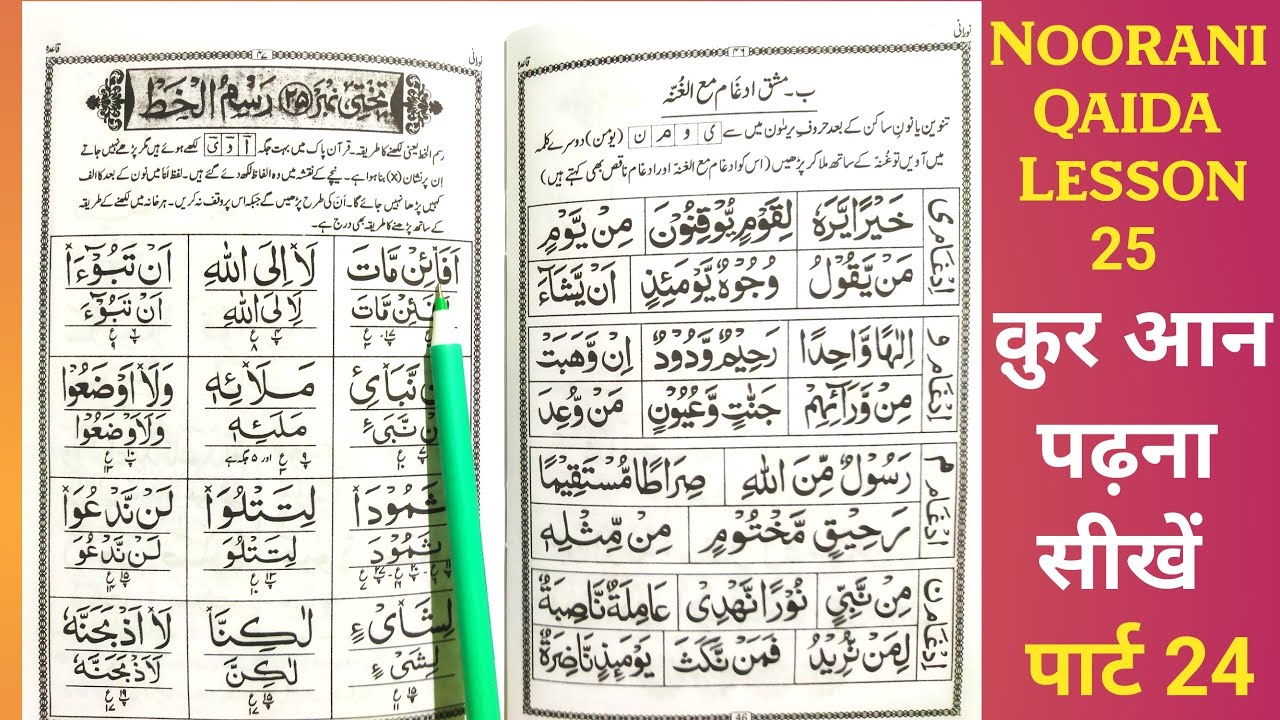 نورانی
۴۶
قاعدہ
ب۔ مشق ادغام مع الغُنّہ
تنوین یا نونِ ساکن کے بعد حروفِ یرملون میں سے ی و م ن (یومن) دوسرے کلمہ
میں آویں تو غُنّہ کے ساتھ ملا کر پڑھیں (اس کو ادغام مع الغنّہ اور ادغام ناقص بھی کہتے ہیں)
ادغام ی
خَيْرًا يَّرَهٗ لِقَوْمٍ يُّوْقِنُوْنَ مِنْ يَّوْمٍ
مَنْ يَّقُوْلُ وُجُوْهٌ يَّوْمَئِذٍ اَنْ يَّشَآءَ
ادغام و
اِلٰهًا وَّاحِدًا رَحِيْمٌ وَّدُوْدٌ اِنْ وَّهَبَتْ
مِنْ وَّرَآئِهِمْ جَنّٰتٍ وَّعُيُوْنٍ مَنْ وُّعِدَ
ادغام م
رَسُوْلٌ مِّنَ اللهِ صِرَاطًا مُّسْتَقِيْمًا
رَحِيْقٍ مَّخْتُوْمٍ مِنْ مِّثْلِهٖ
ادغام ن
مِنْ نَّبِيٍّ نُوْرًا نَّهْدِىْ عَامِلَةٌ نَّاصِبَةٌ
لِمَنْ نُّرِيْدُ فَمَنْ نَّكَثَ يَوْمَئِذٍ نَّاضِرَةٌ
46
نورانی
۴۷
قاعدہ
تختی نمبر (۲۵) رَسْمُ الْخَطْ
رسم الخط یعنی لکھنے کا طریقہ۔ قرآن پاک میں بہت جگہ ا و ی لکھے ہوئے ہیں مگر پڑھے نہیں جاتے
اِن پر نشان (x) بنا ہوا ہے۔ نیچے کے نقشہ میں وہ الفاظ لکھ دئے گئے ہیں۔ لفظ اَنَا میں نون کے بعد کا الف
کہیں پڑھا نہیں جائے گا۔ اَنَ کی طرح پڑھیں گے جبکہ اس پر وقف نہ کریں۔ ہر خانہ میں لکھنے کے طریقہ
کے ساتھ پڑھنے کا طریقہ بھی درج ہے۔
اَفَا۟ئِنْ مَّاتَ لَا۟اِلَى اللهِ اَنْ تَبُوْٓءَا۟
مَّاتَ لَاِلَى اللهِ اَنْ تَبُوْٓءَ
نَّبَا۟ئِ مَلَا۟ئِهٖ وَلَا۟اَوْضَعُوْا
نَّبَىِٕ مَلَئِهٖ وَلَاَوْضَعُوْا
ثَمُوْدَا۟ لِتَتْلُوَا۟ لَنْ نَّدْعُوَا۟
ثَمُوْدَ لِتَتْلُوَ لَنْ نَّدْعُوَ
لِشَا۟ىْءٍ لٰكِنَّا۟ لَا۟اَذْبَحَنَّهٗ
لِشَىْءٍ لٰكِنَّ لَاَذْبَحَنَّهٗ
NOORANI
QAIDA
LESSON
25
कुर आन
पढ़ना
सीखें
पार्ट 24